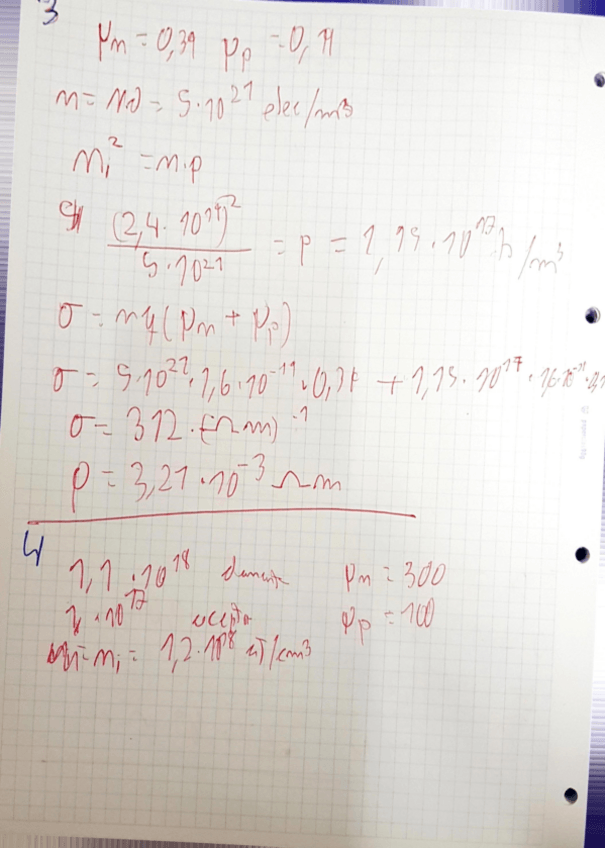 3
μn = 0,39 μp = 0,19
n = ND = 5·10²¹ elec/m³
ni² = n·p
(2,4·10¹⁹)² / 5·10²¹ = p = 1,15·10¹⁷ h/m³
σ = nq(μn + μp)
σ = 5·10²¹·1,6·10⁻¹⁹·0,39 + 1,15·10¹⁷·1,6·10⁻¹⁹
σ = 312·(Ωm)⁻¹
ρ = 3,21·10⁻³ Ωm
4
1,1·10¹⁸ μn = 300
1·10¹⁷ acepto μp = 100
ni = 1,2·10¹⁸ at/cm³